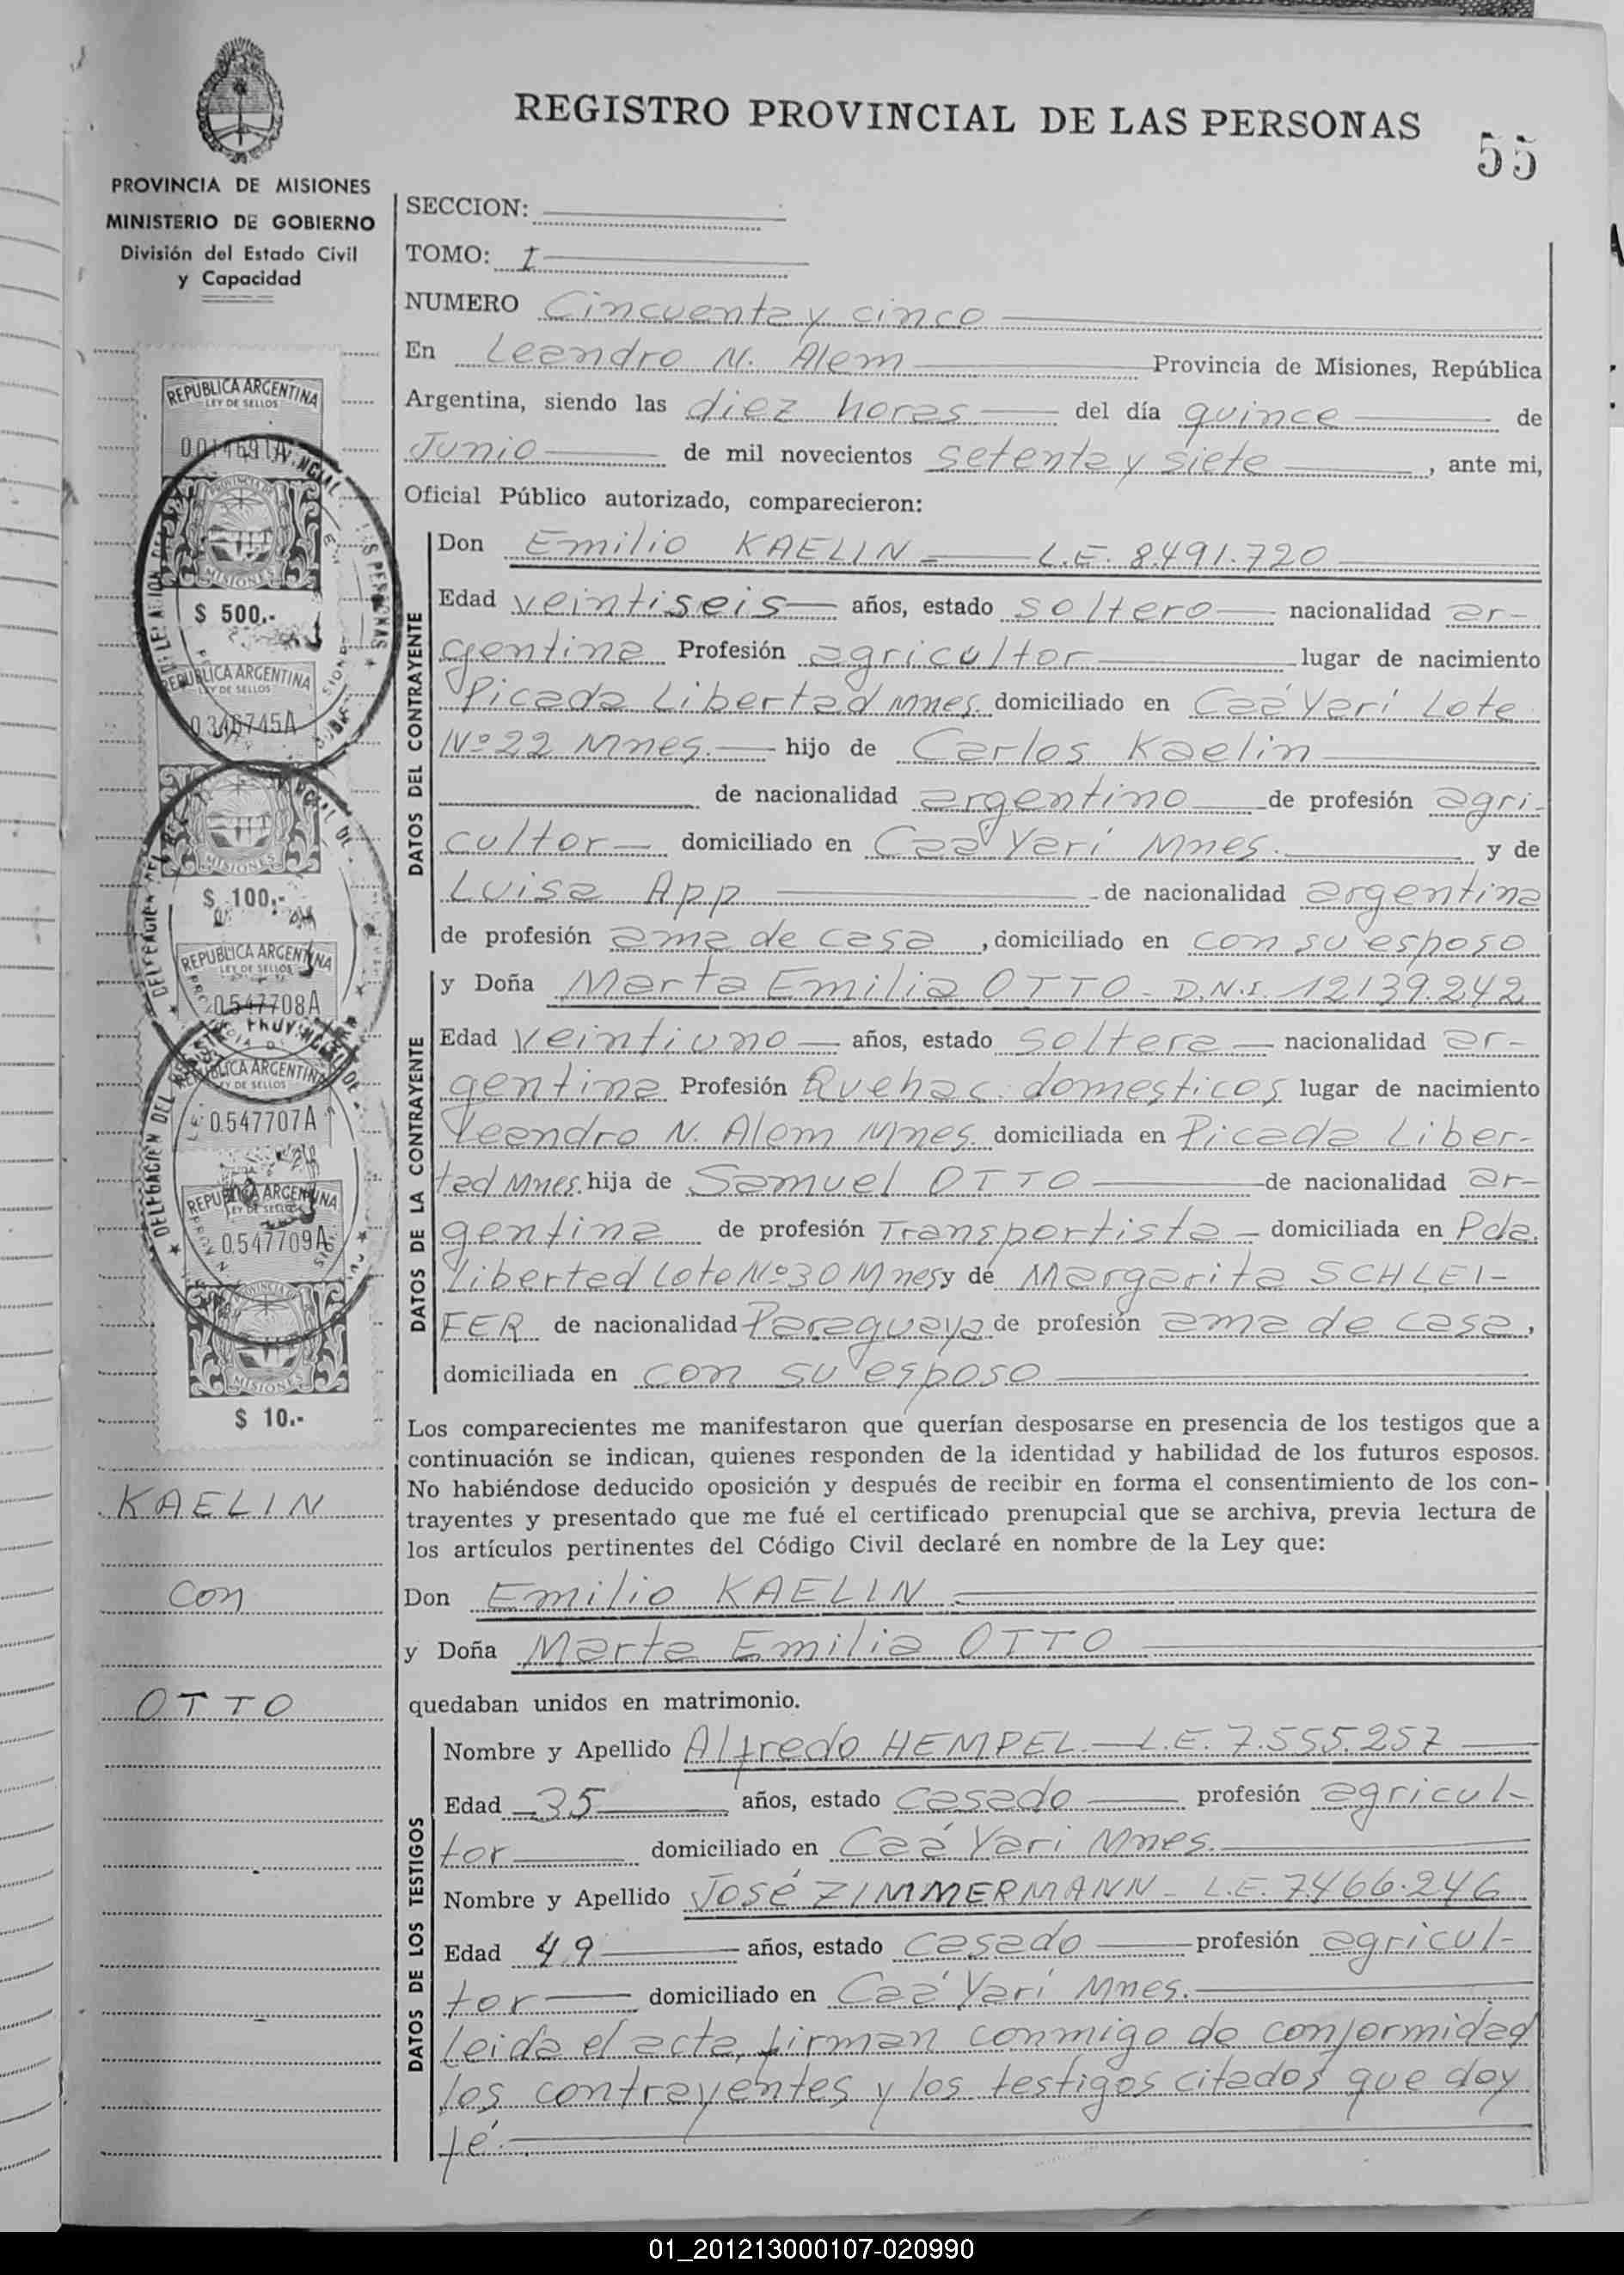 REGISTRO PROVINCIAL DE LAS PERSONAS
55
PROVINCIA DE MISIONES
MINISTERIO DE GOBIERNO
División del Estado Civil
y Capacidad
SECCION:
TOMO: I
NUMERO Cincuenta y cinco
En Leandro N. Alem Provincia de Misiones, República
Argentina, siendo las diez horas del día quince de
Junio de mil novecientos setenta y siete, ante mi,
Oficial Público autorizado, comparecieron:
DATOS DEL CONTRAYENTE
Don Emilio KAELIN - L.E. 8.491.720
Edad veintiseis años, estado soltero nacionalidad ar-
gentina Profesión agricultor lugar de nacimiento
Picada Libertad Mnes. domiciliado en Caá Yarí Lote
Nº 22 Mnes. hijo de Carlos Kaelin
de nacionalidad argentino de profesión agri-
cultor domiciliado en Caá Yarí Mnes. y de
Luisa App de nacionalidad argentina
de profesión ama de casa, domiciliado en con su esposo
DATOS DE LA CONTRAYENTE
y Doña Marta Emilia OTTO - D.N.I. 12139.242
Edad veintiuno años, estado soltera nacionalidad ar-
gentina Profesión Quehac. domesticos lugar de nacimiento
Leandro N. Alem Mnes. domiciliada en Picada Liber-
tad Mnes. hija de Samuel OTTO de nacionalidad ar-
gentina de profesión Transportista - domiciliada en Pda.
Libertad Lote Nº 30 Mnes y de Margarita SCHLEI-
FER de nacionalidad Paraguaya de profesión ama de casa,
domiciliada en con su esposo
Los comparecientes me manifestaron que querían desposarse en presencia de los testigos que a
continuación se indican, quienes responden de la identidad y habilidad de los futuros esposos.
No habiéndose deducido oposición y después de recibir en forma el consentimiento de los con-
trayentes y presentado que me fué el certificado prenupcial que se archiva, previa lectura de
los artículos pertinentes del Código Civil declaré en nombre de la Ley que:
Don Emilio KAELIN
y Doña Marta Emilia OTTO
quedaban unidos en matrimonio.
DATOS DE LOS TESTIGOS
Nombre y Apellido Alfredo HEMPEL.- L.E. 7.555.257
Edad 35 años, estado casado profesión agricul-
tor domiciliado en Caá Yarí Mnes.
Nombre y Apellido José ZIMMERMANN - L.E. 7.466.246
Edad 49 años, estado casado profesión agricul-
tor domiciliado en Caá Yarí Mnes.
leida el acta, firman conmigo de conformidad
los contrayentes y los testigos citados que doy
fé.
REPUBLICA ARGENTINA
LEY DE SELLOS
MISIONES
$ 500.-
REPUBLICA ARGENTINA
LEY DE SELLOS
0346745A
MISIONES
$ 100.-
REPUBLICA ARGENTINA
LEY DE SELLOS
0547708A
REPUBLICA ARGENTINA
LEY DE SELLOS
0547707A
REPUBLICA ARGENTINA
LEY DE SELLOS
0547709A
MISIONES
$ 10.-
KAELIN
con
OTTO
01_201213000107-020990